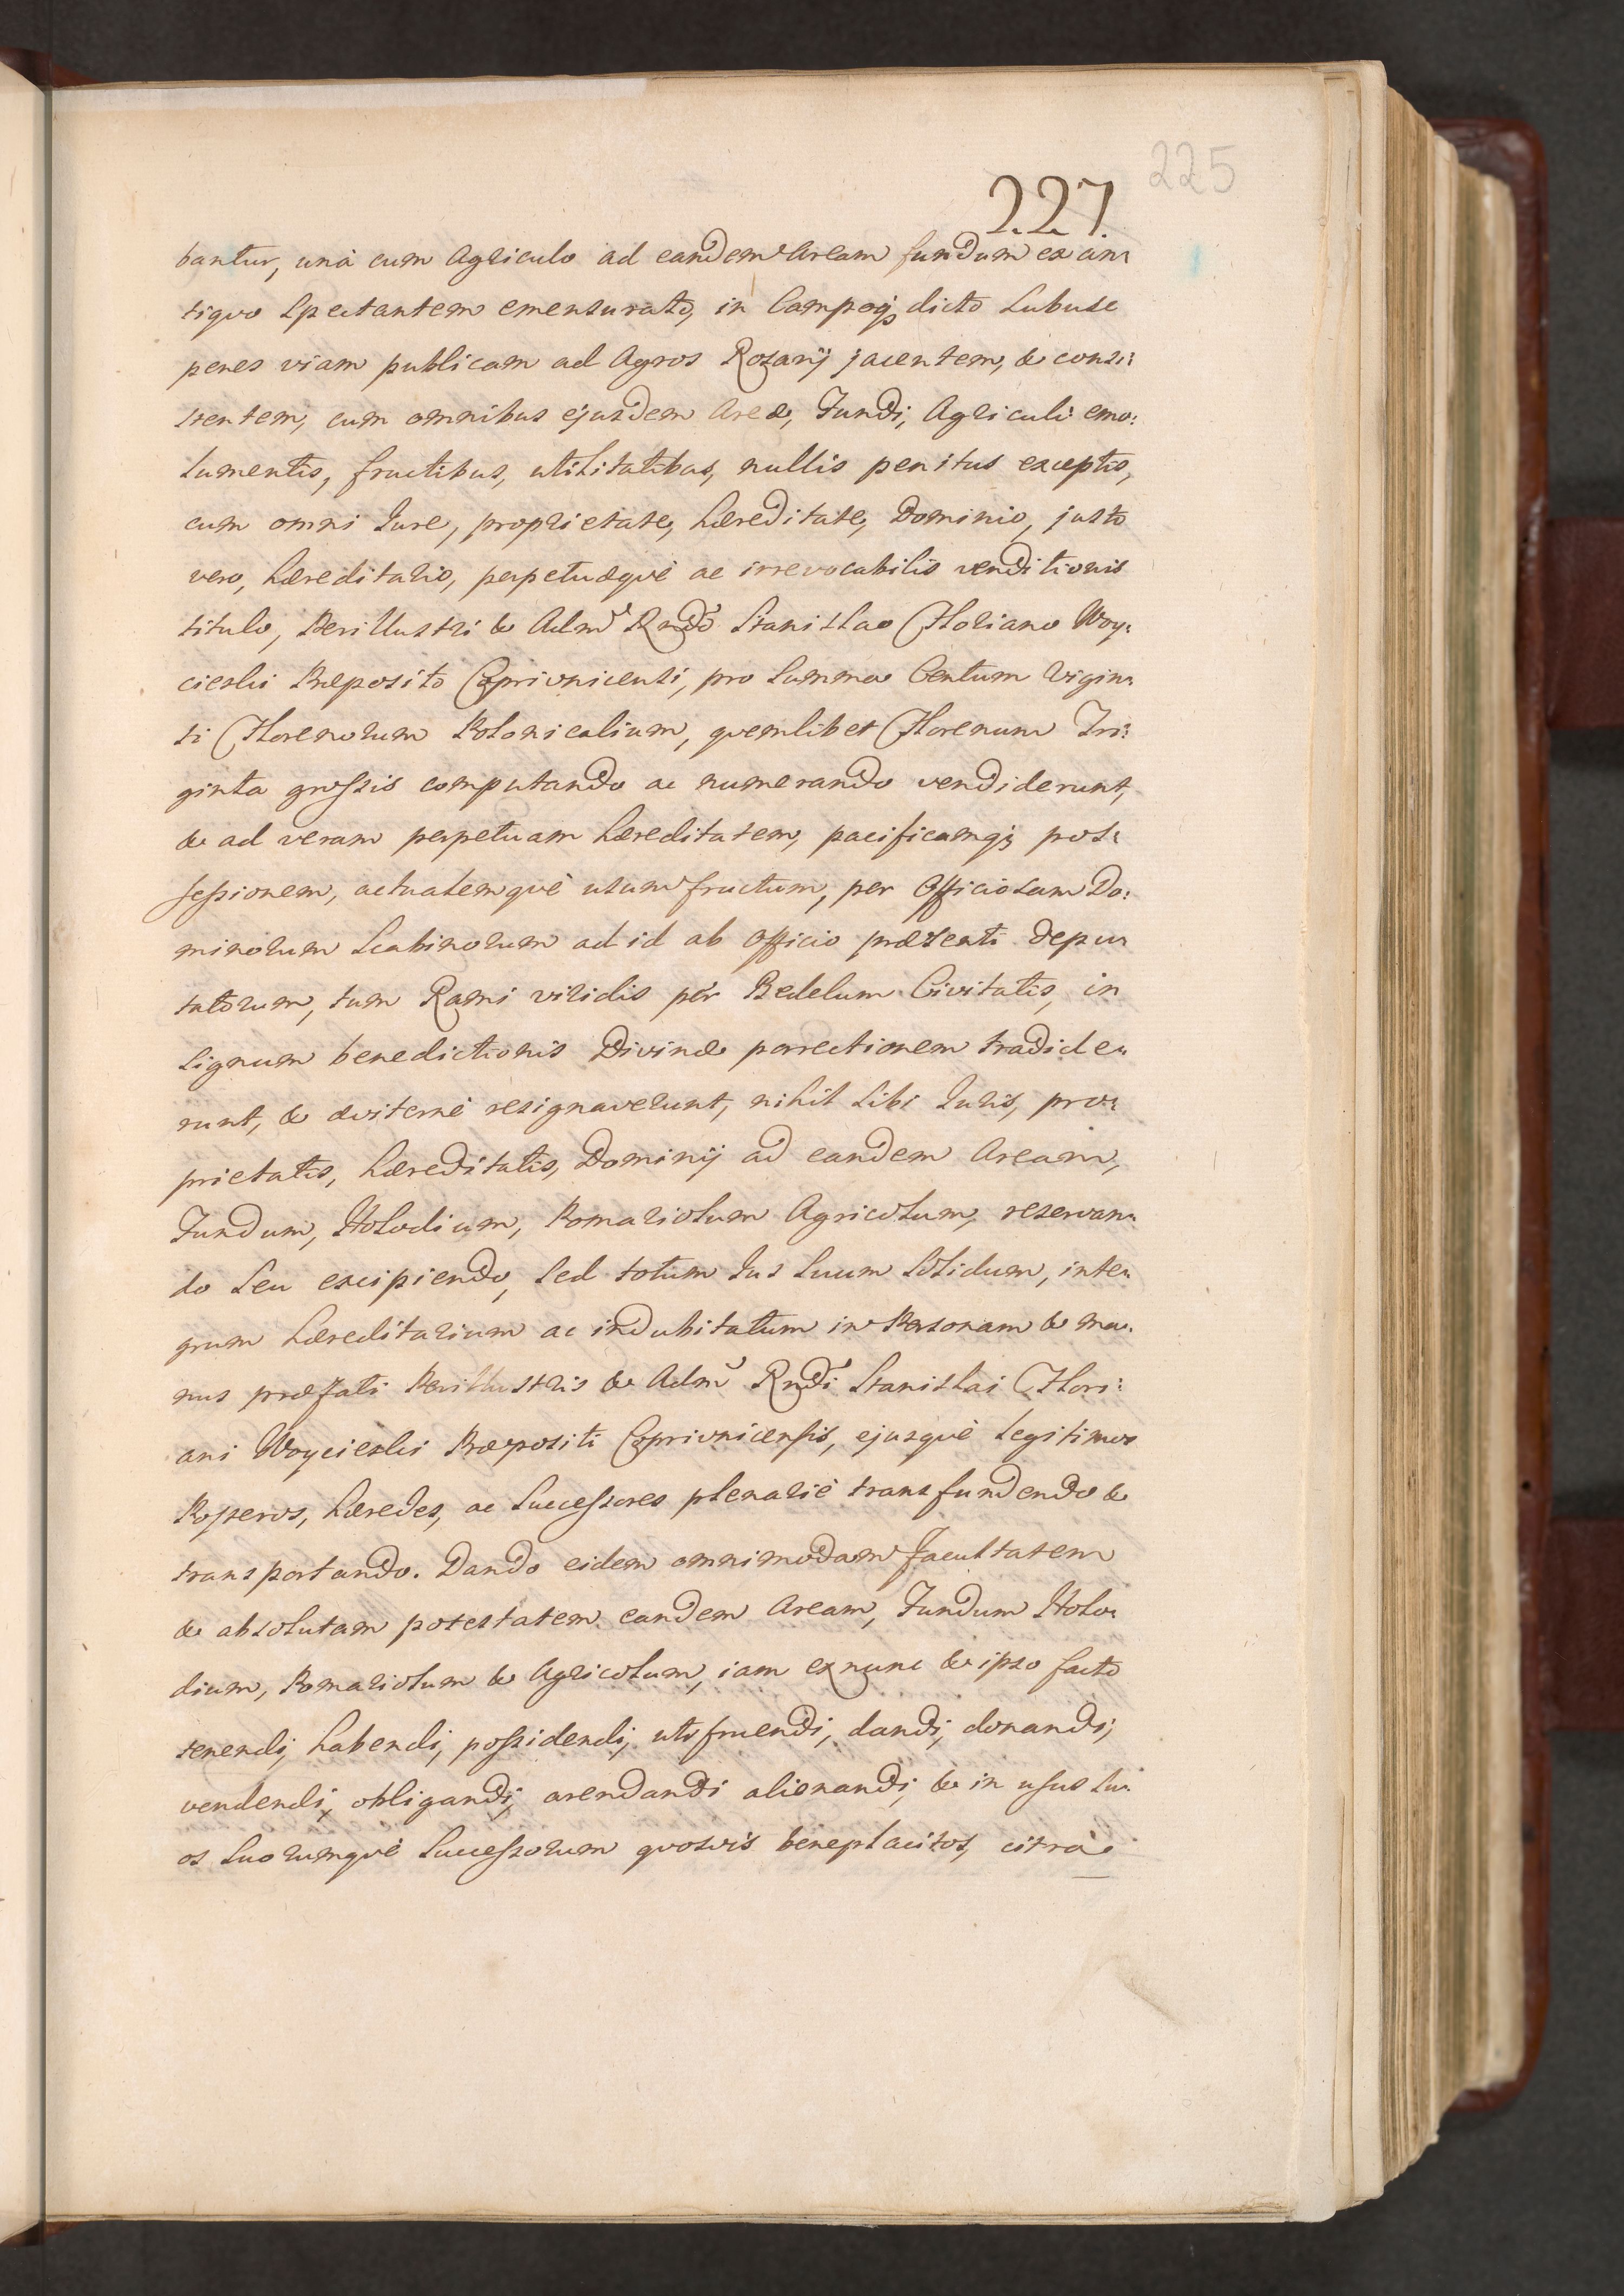 225
227.
bantur, unà cum Agriculo ad eandem Aream fundum ex an:
tiquo Spectantem emensurato, in Campoq; dicto Lubuse
penes viam publicam ad Agros Rozarij jacentem, & consi:
stentem, cum omnibus ejusdem Areæ, Fundi, Agriculi emo:
lumentis, fructibus, utilitatibus, nullis penitus exceptis,
cum omni Jure, proprietate, hæreditate, Dominio, justo
vero, hæreditario, perpetuæquè ac irrevocabilis venditionis
titulo, Perillustri & Adm Rndo Stanislao Floriano Woy:
cieski Præposito Coprivnicensi, pro Summa Centum Vigin:
ti Florenorum Polonicalium, quemlibet Florenum Tri:
ginta grossis computando ac numerando vendiderunt,
& ad veram perpetuam hæreditatem, pacificamq; pos:
sessionem, actualemquè usumfructum, per Officiosam Do:
minorum Scabinorum ad id ab Officio præsenti depu:
tatorum, tum Rami viridis per Bedelum Civitatis, in
Signum benedictionis Divinæ porrectionem tradide:
runt, & æviternè resignaverunt, nihil Sibi Juris, pro:
prietatis, hæreditatis, Dominij ad eandem Aream,
Fundum, Holodium, Pomariolum Agricolum, reservan:
do Seu excipiendo, Sed totum Jus Suum Solidum, inte:
grum hæreditarium ac indubitatum in Personam & ma:
nus præfati Perillustris & Adm Rndi Stanislai Flori:
ani Woycieski Præpositi Coprivnicensis, ejusquè Legitimos
Posteros, hæredes, ac Successores plenariè transfundendo &
transportando. Dando eidem omnimodam facultatem
& absolutam potestatem eandem Aream, Fundum Holo:
dium, Pomariolum & Agricolum, iam exnunc & ipso facto
tenendi, habendi, possidendi, utifruendi, dandi, donandi,
vendendi, obligandi, arendandi alienandi, & in usus Su:
os Suorumquè Successorum quosvis beneplacitos, citrà